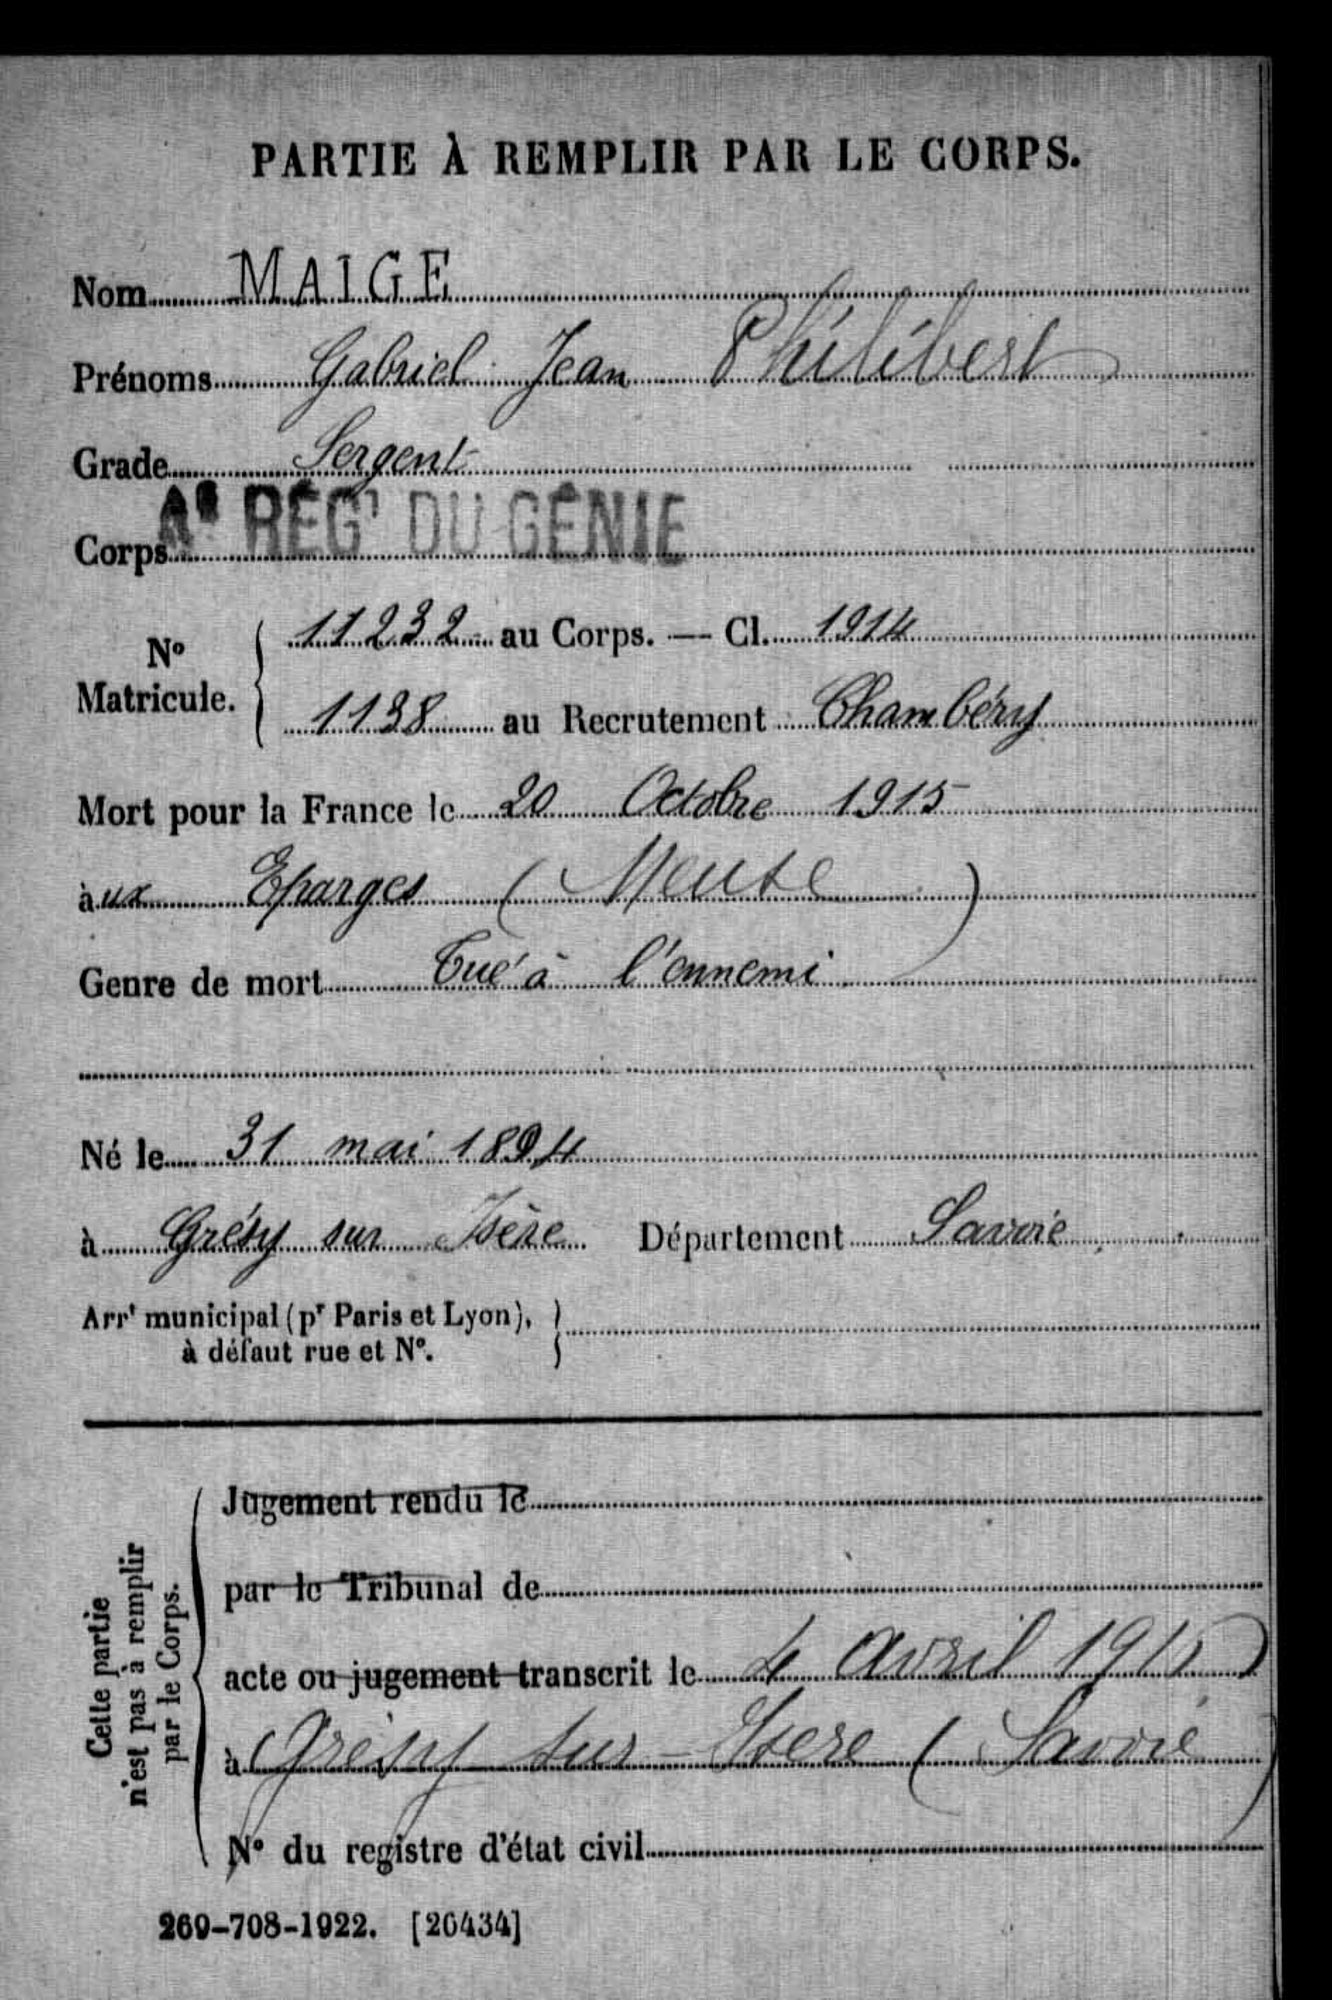 PARTIE À REMPLIR PAR LE CORPS.
Nom MAIGE
Prénoms Gabriel Jean Philibert
Grade Sergent
Corps RÉGt DU GÉNIE
No Matricule. 11232 au Corps. — Cl. 1914
1138 au Recrutement Chambéry
Mort pour la France le 20 Octobre 1915
àux Eparges (Meuse)
Genre de mort Tué à l'ennemi
Né le 31 mai 1894
à Grésy sur Isère Département Savoie
Arrt municipal (pr Paris et Lyon),
à défaut rue et No.
Cette partie
n'est pas à remplir
par le Corps.
Jugement rendu le
par le Tribunal de
acte ou jugement transcrit le 4 avril
à Grésy sur-Isere (Savoie)
No du registre d'état civil
269-708-1922. [26434]